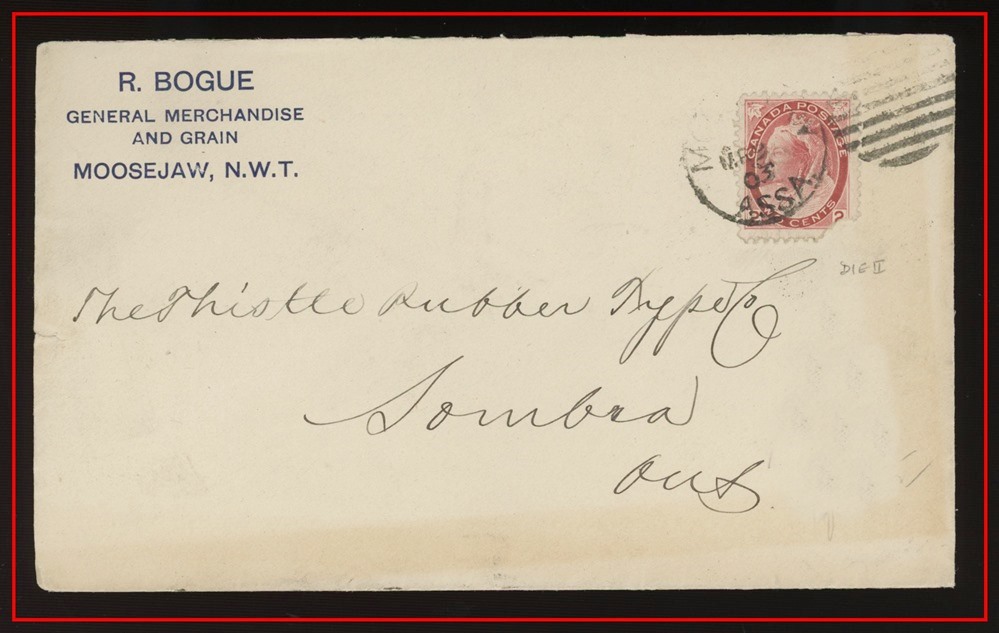 R. BOGUE
GENERAL MERCHANDISE
AND GRAIN
MOOSEJAW, N.W.T.
CANADA POSTAGE
2 CENTS 2
03
ASSA.
DIE II
The Thistle Rubber Type Co
Sombra
Ont